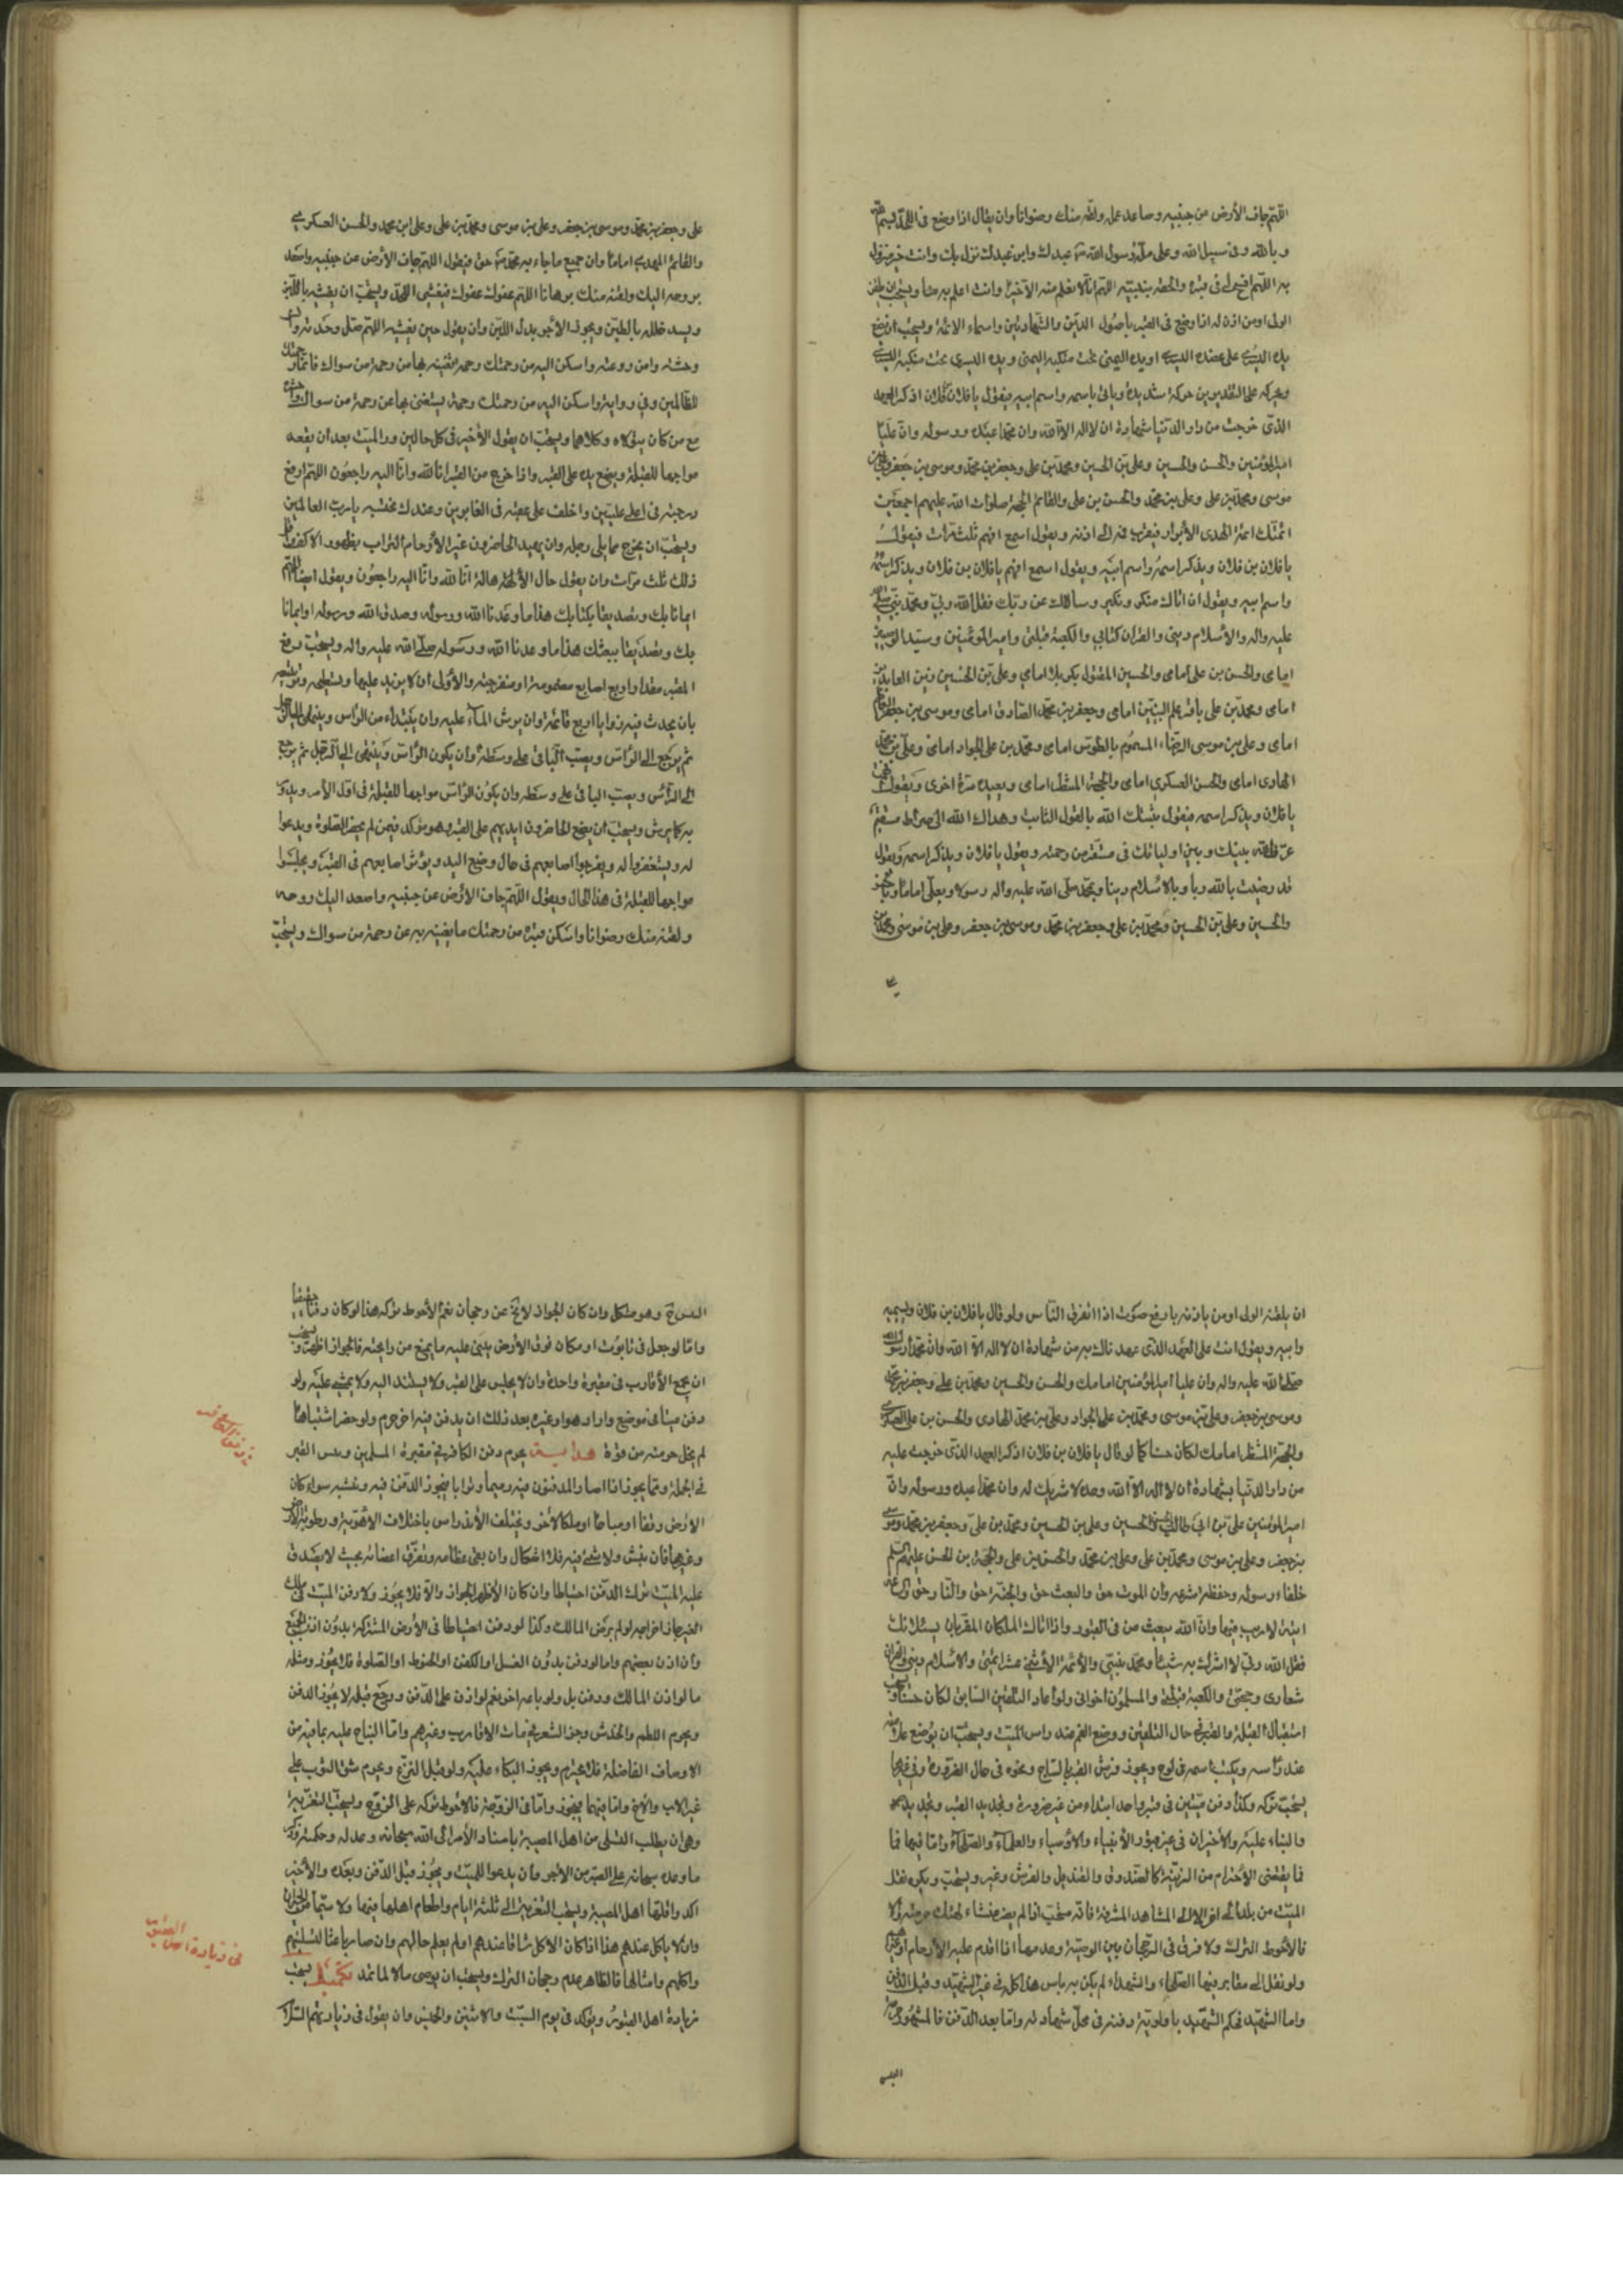 اللهم جاف الأرض عن جنبيه وصاعد عمله ولقه منك رضوانا وان يقال اذا وضع في اللحد بسم الله
وبالله وفي سبيل الله وعلى ملة رسول الله عبدك وابن عبدك نزل بك وانت خير منزول
به اللهم افسح له في قبره والحقه بنبيه اللهم انا لا نعلم منه الا خيرا وانت اعلم به منا ويستحب ان يلقن
الولى او من اذن له اذا وضع في القبر باصول الدين والشهادتين واسماء الائمة ويستحب ان يضع
يده اليسرى على عضده اليسرى او يده اليمنى تحت منكبه اليمنى ويده اليسرى تحت منكبه اليسرى
ويحركه على التقديرين حركة شديدة وياتي باسمه واسم ابيه فيقول يا فلان بن فلان اذكر العهد
الذي خرجت من دار الدنيا شهادة ان لا اله الا الله وان محمدا عبده ورسوله وان عليا
امير المؤمنين والحسن والحسين وعلي بن الحسين ومحمد بن علي وجعفر بن محمد وموسى بن جعفر وعلي بن
موسى ومحمد بن علي وعلي بن محمد والحسن بن علي والقائم الحجة صلوات الله عليهم اجمعين
ائمتك ائمة الهدى الأبرار فيقرب فمه الى اذنه ويقول اسمع افهم ثلث مرات فيقول
يا فلان بن فلان ويذكر اسمه واسم ابيه ويقول اسمع افهم يا فلان بن فلان ويذكر اسمه
واسم ابيه ويقول ان اتاك منكر ونكير وسألاك عن ربك فقل الله ربي ومحمد نبيي صلى الله
عليه واله والأسلام ديني والقران كتابي والكعبة قبلتي وامير المؤمنين وسيد الوصيين
امامى والحسن بن علي امامى والحسين المقتول بكربلا امامي وعلي بن الحسين زين العابدين
امامى ومحمد بن علي باقر علم النبيين امامى وجعفر بن محمد الصادق امامى وموسى بن جعفر الكاظم
امامى وعلي بن موسى الرضاء المسموم بالطوس امامى ومحمد بن علي الجواد امامى وعلي بن محمد
الهادى امامى والحسن العسكري امامى والحجة المنتظر امامى ويعيده مرة اخرى ويقول
يا فلان ويذكر اسمه فيقول ثبتك الله بالقول الثابت وهداك الله الى صراط مستقيم
عرف الله بينك وبين اوليائك في مستقر من رحمته ويقول يا فلان ويذكر اسمه ويقول
قد رضيت بالله ربا وبالاسلام دينا وبمحمد صلى الله عليه واله رسولا وبعلي اماما وبالحسن
والحسين وعلي بن الحسين ومحمد بن علي وجعفر بن محمد وموسى بن جعفر وعلي بن موسى ومحمد بن
علي وجعفر بن محمد وموسى بن جعفر وعلي بن موسى ومحمد بن علي وعلي ابن محمد والحسن العسكري
والقائم المهدي اماما وان جميع ما جاء به محمد حق فيقول اللهم جاف الأرض عن جنبيه واصعد
بروحه اليك ولقنه منك برهانا اللهم عفوك عفوك فيغشى اللحد ويستحب ان يغشيه باللبن
ويسد خلله بالطين ويجوز الأجر بدل اللبن وان يقول حين يغشيه اللهم صل وحدته وانس
وحشته وامن روعته واسكن اليه من رحمتك رحمة تغنيه بها من رحمة من سواك فانما رحمتك
للظالمين وفي رواية واسكن اليه من رحمتك رحمة يستغنى بها عن رحمة من سواك واحشره
مع من كان يتولاه وكلاهما ويستحب ان يقول الأخير في كل حالين وزر الميت بعد ان يقعد
مواجها للقبلة ويضع يده على القبر واذا خرج من القبر انا لله وانا اليه راجعون اللهم ارفع
درجته في اعلى عليين واخلف على عقبه في الغابرين وعندك نحتسبه يا رب العالمين
ويستحب ان يخرج مما يلي رجليه وان يهيل الحاضرون غير الأرحام التراب بظهور الاكف
ذلك ثلث مرات وان يقول حال الأهالة انا لله وانا اليه راجعون ويقول ايضا اللهم
ايمانا بك وتصديقا بكتابك هذا ما وعدنا الله ورسوله وصدق الله ورسوله او ايمانا
بك وتصديقا ببعثك هذا ما وعدنا الله ورسوله صلى الله عليه واله ويستحب رفع
القبر مقدار اربع اصابع مضمومة او منفرجة والأولى ان لا يزيد عليها وتسطيحه وتربيعه
بان يحدث فيه زوايا اربع قائمة وان يرش الماء عليه وان يبتداء من الرأس وينتهى الى الرجل
ثم يرجع الى الرأس ويصب الباقي على وسطه وان يكون الرأس وينتهى الى الرجل ثم يرجع
الى الرأس ويصب الباقي على وسطه وان يكون الرأس مواجها للقبلة في اول الأمر ويدور
به كما يرش ويستحب ان يضع الحاضرون ايديهم على القبر وهو مؤكد فيمن لم يحضر الصلوة ويدعوا
له ويستغفروا له ويفرجوا اصابعهم في حال وضع اليد ويؤثر اصابعهم في القبر ويجلسوا
مواجها للقبلة في هذا الحال ويقول اللهم جاف الأرض عن جنبيه واصعد اليك روحه
ولقنه منك رضوانا واسكن قبره من رحمتك ما يغنيه به عن رحمة من سواك ويستحب
ان يلقنه الولى او من ياذنه بارفع صوت اذا انفرق الناس ولو قال يا فلان بن فلان ويسميه
وابيه ويقول انت على العهد الذي عهدناك به من شهادة ان لا اله الا الله وان محمدا رسول الله
صلى الله عليه واله وان عليا امير المؤمنين امامك والحسن والحسين ومحمد بن علي وجعفر بن محمد
وموسى بن جعفر وعلي بن موسى ومحمد بن علي الجواد وعلي بن محمد الهادى والحسن بن علي العسكري
والحجة المنتظر امامك لكان حسنا كما لو قال يا فلان بن فلان اذكر العهد الذي خرجت عليه
من دار الدنيا بشهادة ان لا اله الا الله وحده لا شريك له وان محمدا عبده ورسوله وان
امير المؤمنين علي بن ابي طالب والحسن والحسين وعلي بن الحسين ومحمد بن علي وجعفر بن محمد وموسى
بن جعفر وعلي بن موسى ومحمد بن علي وعلي بن محمد والحسن بن علي والحجة بن الحسن عليهم السلم
خلفاء رسوله وحفظة شرعه وان الموت حق والبعث حق والجنة حق والنار حق والساعة
اتية لا ريب فيها وان الله يبعث من في القبور واذا اتاك الملكان المقربان يسئلانك
فقل الله ربي لا اشرك به شيئا ومحمد نبيي والأئمة الأثنى عشر ائمتي والاسلام ديني والقران
شعارى وحجتي والكعبة قبلتي والمسلمون اخواني ولو اعاد التلقين السابق لكان حسنا ويستحب
استقبال القبلة والقبر في حال التلقين ووضع الفم عند راس الميت ويستحب ان يوضع علامة
عند رأسه ويكتب اسمه في لوح ويجوز فرش القبر بالساج ونحوه في حال الضرورة وفي غيرها
يستحب تركه وكذا دفن ميتين في قبر واحد ابتداء من غير ضرورة وتجديد القبر وتجديده
والبناء عليه والأخيران في غير قبور الأنبياء والأوصياء والعلماء والصلحاء واما فيها فما
فما يقتضى الاحترام من الزينة كالصندوق والقنديل والفرش وغيره ويستحب ويكره نقل
الميت من بلد الى اخر الا الى المشاهد المشرفة فانه مستحب اذا لم يصر منشاء لهتك حرمته والا
فالأحوط الترك ولا فرق في الرجحان بين الوصية وعدمها اذا اقدم عليه الأرحام او غيرها
ولو نقل الى مقابر فيها الصلحاء والشهداء لم يكن به باس هذا كله في غير الشهيد وقبل الدفن
واما الشهيد فحكم الشهيد باولوية دفنه في محل شهادته واما بعد الدفن فالمشهور حرمة
النبش وهو مشكل وان كان الجواز لا يخ عن رجحان نعم الأحوط تركه هذا لو كان دفنا حقيقيا
واما لو جعل في تابوت او مكان فوق الأرض يبنى عليه ما يمنع من رايحته فالجواز اظهر ويستحب
ان يجمع الأقارب في مقبرة واحدة وان لا يجلس على القبر ولا يستند اليه ولا يمشى عليه ولو
دفن ميتا في موضع واراد هو او غيره بعد ذلك ان يدفن فيه اخر حرم ولو حفر اشتباها
لم يخل حرمته من قوة هداية يحرم دفن الكافر في مقبرة المسلمين ونبش القبر
في الجملة ومما يجوز اذا صار المدفون فيه رميما وترابا فيجوز الدفن فيه ونبشه سواء كان
الارض وقفا او مباحا او ملكا لاخر ويختلف الأندراس باختلاف الأهوية ورطوبة الارض
وغيرها فان نبش ولا شئ فيه فلا اشكال وان بقى عظامه وتفرق اعضائه بحيث لا يصدق
عليه الميت ترك الدفن احتياطا وان كان الأظهر الجواز والا فلا يجوز ولا دفن الميت في ملك
الغير جاز اخراجه لو لم يرض المالك وكذا لو دفن احتياطا في الأرض المشتركة بدون اذن الجميع
وان اذن بعضهم واما لو دفن بدون الغسل او الكفن او الحنوط او الصلوة فلا يجوز ومثله
ما لو اذن المالك ودفن بل ولو باعه اخر نعم لو اذن على الدفن ورجع قبله لا يجوز الدفن
ويحرم اللطم والخدش وجز الشعر في مات الاقارب وغيرهم واما النياح عليه بما فيه من
الاوصاف الفاضلة فلا يحرم ويجوز البكاء عليه ولو قبل النزع ويحرم شق الثوب على
غير الاب والأخ واما فيهما فيجوز واما في الزوجة فالأحوط تركه على الزوج ويستحب التعزية
وهي ان يطلب التسلى من اهل المصيبة باسناد الأمر الى الله سبحانه وعدله وحكمته وذكر
ما وعده سبحانه على الصبر من الأجر وان يدعوا للميت ويجوز قبل الدفن وبعده والأخير
اكد واقلها اهل المصيبة ويستحب التعزية الى ثلثة ايام واطعام اهلها فيها ولا سيما من الجيران
وان لا ياكل عندهم هذا اذا كان الاكل شاقا عندهم او لم يعلم حالهم وان صار باعثا لتسليتهم
واكلهم وامثالها فالظاهر عدم رجحان الترك ويستحب ان يوصى مالا لماتمه تكميل يستحب
زيارة اهل القبور ويؤكد في يوم السبت والاثنين والخميس وان يقول في زيارتهم السلام
في دفن الكافر
في زيارة اهل القبور